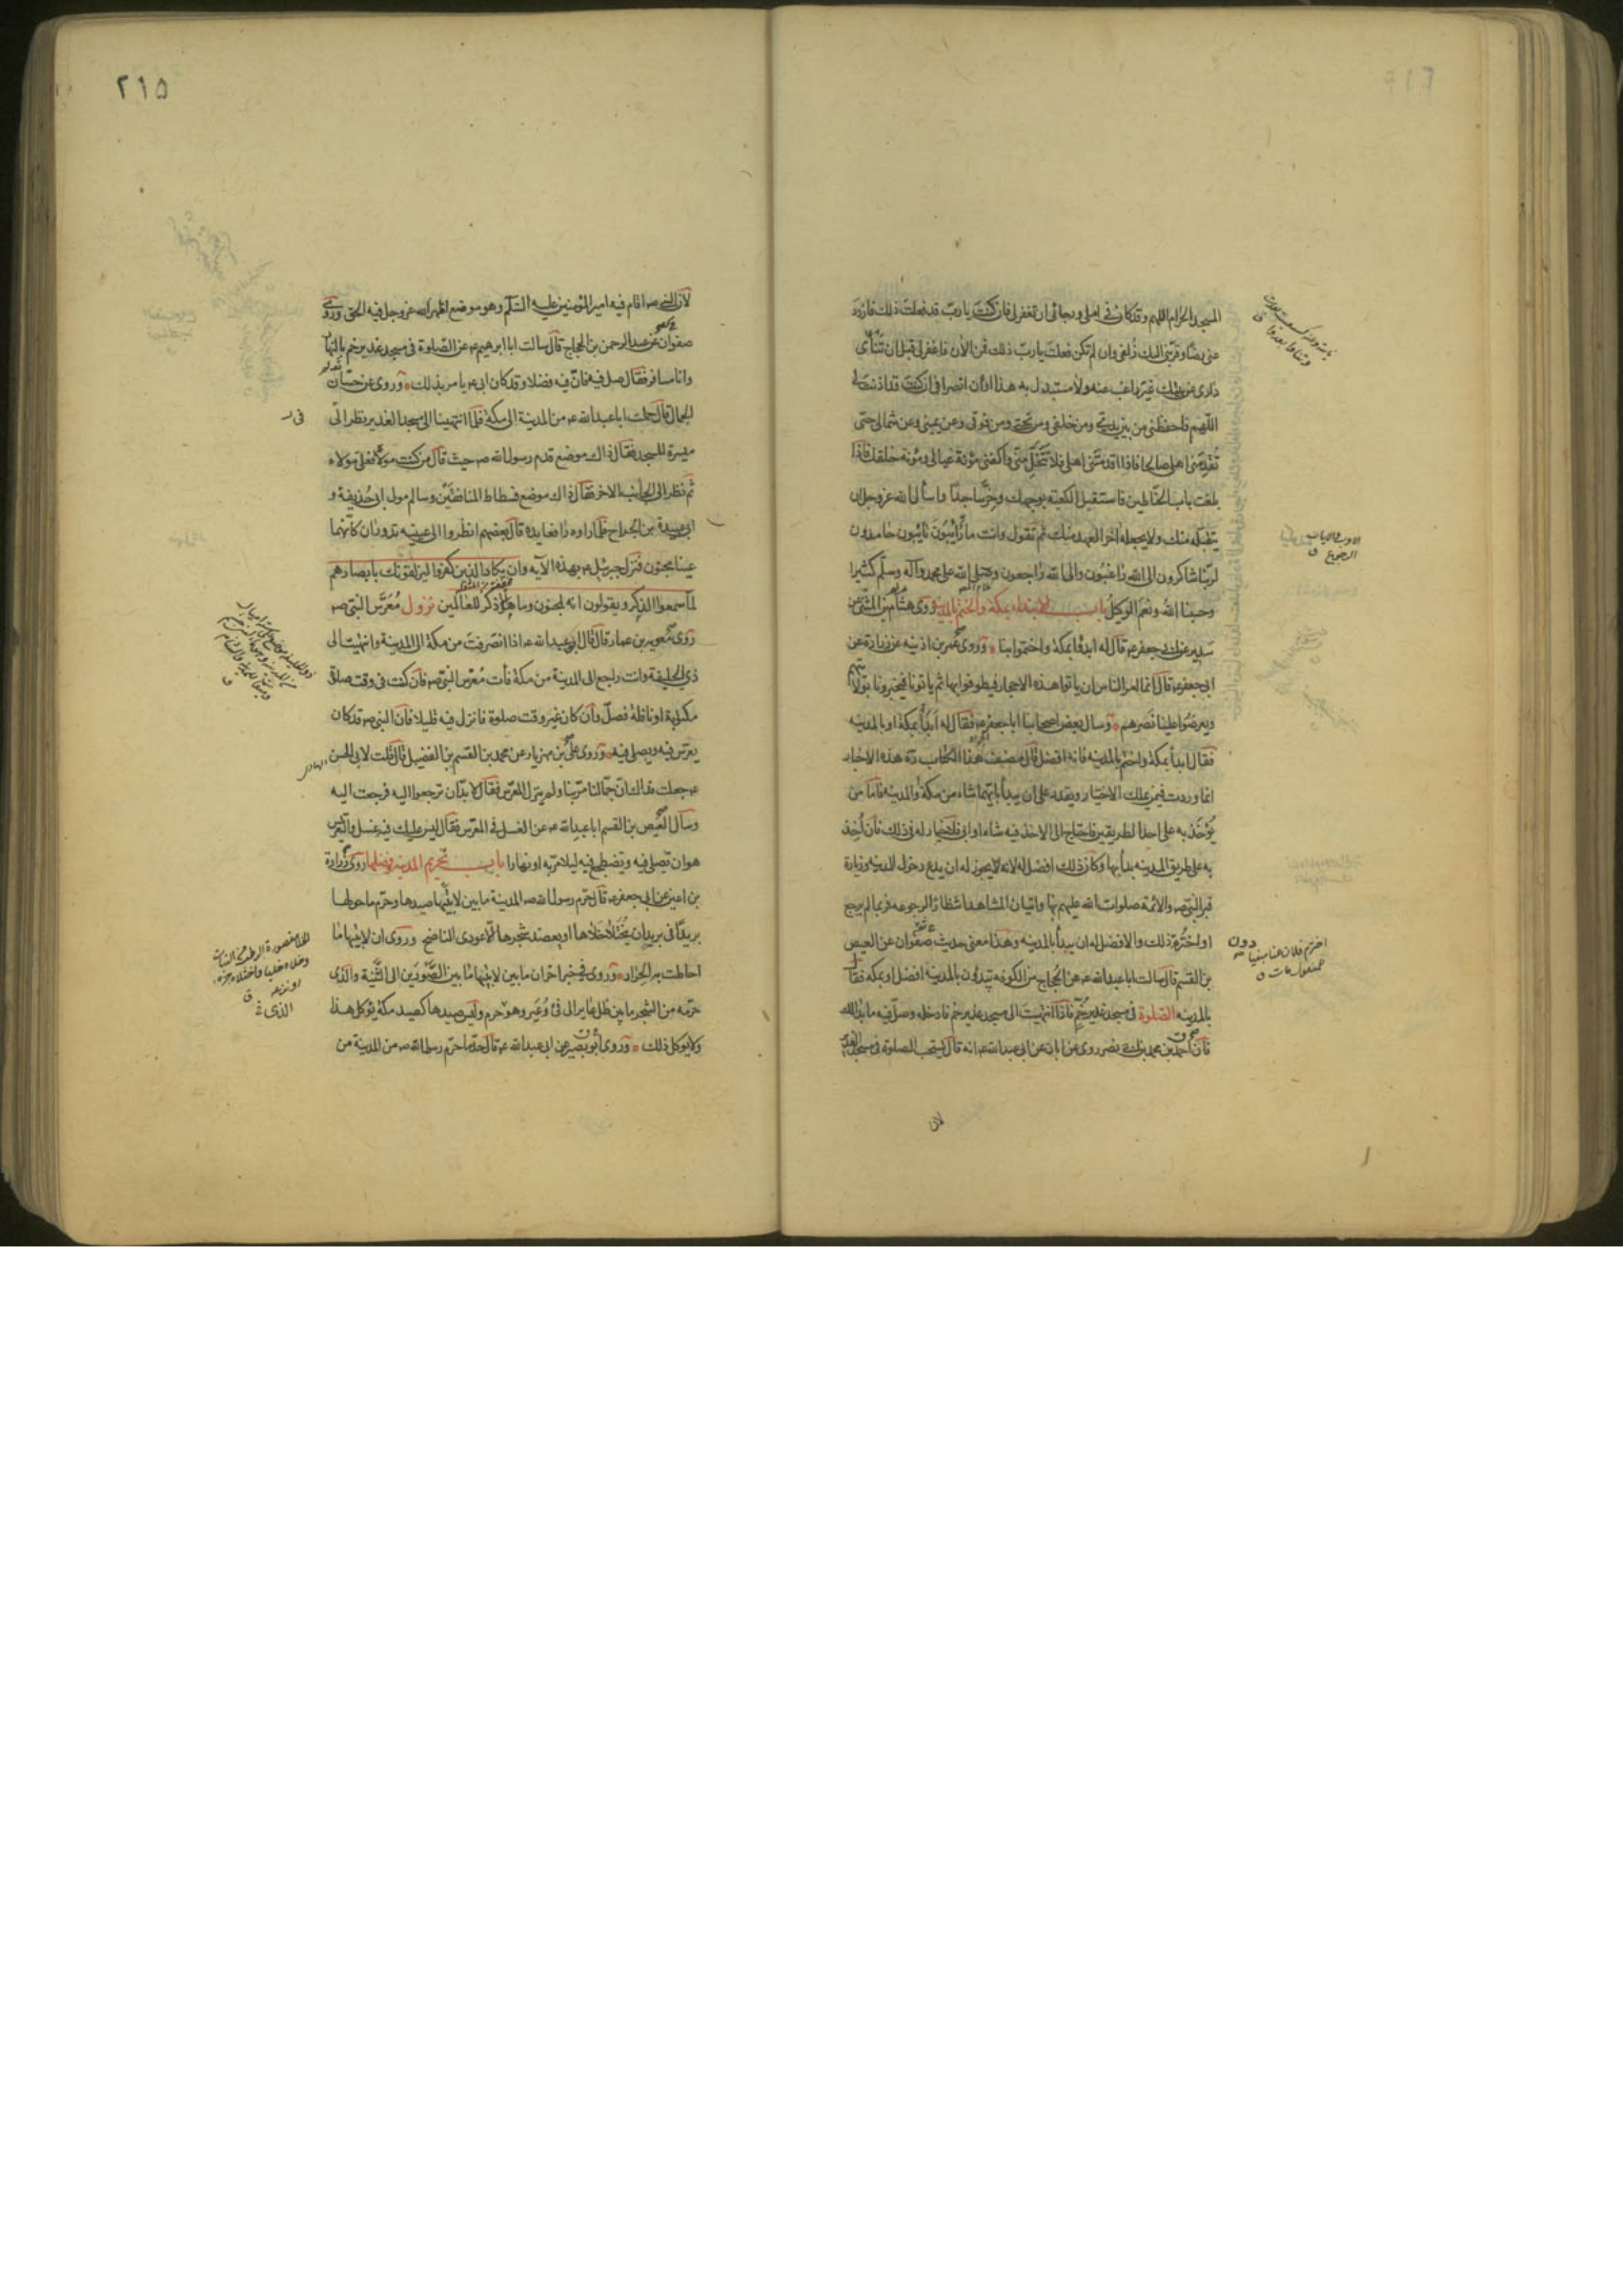 المسجد الحرام اللهم وقد كان في املي ورجائي ان تغفر لي فان كنت يا رب قد فعلت ذلك فازدد
عني رضا وقربني اليك زلفى وان لم تكن فعلت يا رب ذلك فمن الآن فاغفر لي قبل ان تنأى
داري عن بيتك غير راغب عنه ولا مستبدل به هذا اوان انصرافي ان كنت قد اذنت لي
اللهم فاحفظني من بين يدي ومن خلفي ومن تحتي ومن فوقي وعن يميني وعن شمالي حتى
تقدمني اهلي صالحا فاذا اقدمتني اهلي فلا تتخل مني واكفني مؤنة عيالي ومؤنة خلقك فاذا
بلغت باب الحناطين فاستقبل الكعبة بوجهك وخر ساجدا واسأل الله عز وجل ان
يتقبله منك ولا يجعله آخر العهد منك ثم تقول وانت مار آيبون تايبون حامدون
لربنا شاكرون الى الله راغبون والى الله راجعون وصلى الله على محمد وآله وسلم كثيرا
وحسبنا الله ونعم الوكيل باب الابتداء بمكة والختم بالمدينة روى هشام بن المثنى عن
سدير عن ابي جعفر ع قال له ابدؤا بمكة واختموا بنا وروى عمر بن اذينه عن زرارة عن
ابي جعفر ع قال انما امر الناس ان ياتوا هذه الاحجار فيطوفوا بها ثم ياتونا فيخبرونا بولايتهم
ويعرضوا علينا نصرهم وسال بعض اصحابنا ابا جعفر ع فقال له ابدأ بمكة او بالمدينه
فقال ابدأ بمكة واختم بالمدينه فانه افضل قال مصنف هذا الكتاب ره هذه الاخبار
انما وردت فيمن يملك الاختيار ويقدر على ان يبدأ بايهما شاء من مكة والمدينه فاما من
يؤخذ به على احد الطريقين فاحتاج الى الاخذ فيه شاء او ابى فلا خيار له في ذلك فان اخذ
به على طريق المدينه بدأ بها وكان ذلك افضل له لانه لا يجوز له ان يدع دخول المدينه وزيارة
قبر النبي ص والائمة صلوات الله عليهم بها واتيان المشاهد انتظارا للرجوع فربما لم يرجع
او اخترم دون ذلك والافضل له ان يبدأ بالمدينه وهذا معنى حديث صفوان عن العيص
بن القسم قال سالت ابا عبد الله ع عن الحجاج من الكوفه يبدؤن بالمدينة افضل او بمكه فقال
بالمدينه الصلوة في مسجد غدير خم فاذا انتهيت الى مسجد غدير خم فادخله وصل فيه ما بدا لك
فان احمد بن محمد بن ابي نصر روى عن ابان عن ابي عبد الله ع انه قال يستحب الصلوة في مسجد الغدير
لان
الاوب والاياب
الرجوع ق
٢١٥
لان النبي ص اقام فيه امير المؤمنين عليه السلام وهو موضع اظهر الله عز وجل فيه الحق وروى
صفوان عن عبد الرحمن بن الحجاج قال سالت ابا ابرهيم ع عن الصلوة في مسجد غدير خم بالنهار
وانا مسافر فقال صل فيه فان فيه فضلا وقد كان ابي ع يامر بذلك وروى عن حسان
الجمال قال حملت ابا عبد الله ع من المدينة الى مكة فلما انتهينا الى مسجد الغدير نظر الى
ميسرة المسجد فقال ذاك موضع قدم رسول الله ص حيث قال من كنت مولاه فعلي مولاه
ثم نظر الى الجانب الآخر فقال ذاك موضع فسطاط المنافقين وسالم مولى ابي حذيفة و
ابي عبيدة بن الجراح فلما راوه رافعا يده قال بعضهم انظروا الى عينيه تدوران كانهما
عينا مجنون فنزل جبرئيل ع بهذه الآيه وان يكاد الذين كفروا ليزلقونك بابصارهم
لما سمعوا الذكر ويقولون انه لمجنون وما هو الا ذكر للعالمين نزول معرس النبي ص
روى معوية بن عمار قال قال ابو عبد الله ع اذا انصرفت من مكة الى المدينة وانتهيت الى
ذي الحليفة وانت راجع الى المدينة من مكة فأت معرس النبي ص فان كنت في وقت صلوة
مكتوبة او نافلة فصل وان كان غير وقت صلوة فانزل فيه قليلا فان النبي ص قد كان
يعرس فيه ويصلي فيه وروى علي بن مهزيار عن محمد بن القسم بن الفضيل قال قلت لابي الحسن
ع جعلت فداك ان جمالنا مر بنا ولم ينزل المعرس فقال لا بد ان ترجعوا اليه فرجعت اليه
وسأل العيص بن القسم ابا عبد الله ع عن الغسل في المعرس فقال ليس عليك فيه غسل والتعريس
هو ان تصلي فيه وتضطجع فيه ليلا مر به او نهارا باب تحريم المدينه وفضلها روى زرارة
بن اعين عن ابي جعفر ع قال حرم رسول الله ص المدينة ما بين لابتيها صيدها وحرم ما حولها
بريدا في بريد ان يختلا خلاها او يعضد شجرها الا عودي الناضح وروى ان لابتيها ما
احاطت به الحرار وروى في خبر آخر ان ما بين لابتيها ما بين الصورين الى الثنية والذي
حرمه من الشجر ما بين ظل عاير الى فئ وعير وهو حرم وليس صيدها كصيد مكة يؤكل هذا
ولا يوكل ذلك وروى ابو بصير عن ابي عبد الله ع قال حد ما حرم رسول الله ص من المدينة من